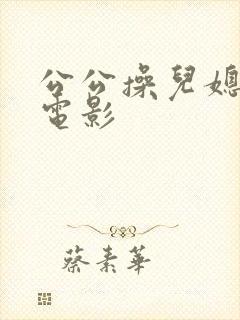 公公操兒媳
電影
蔡素華